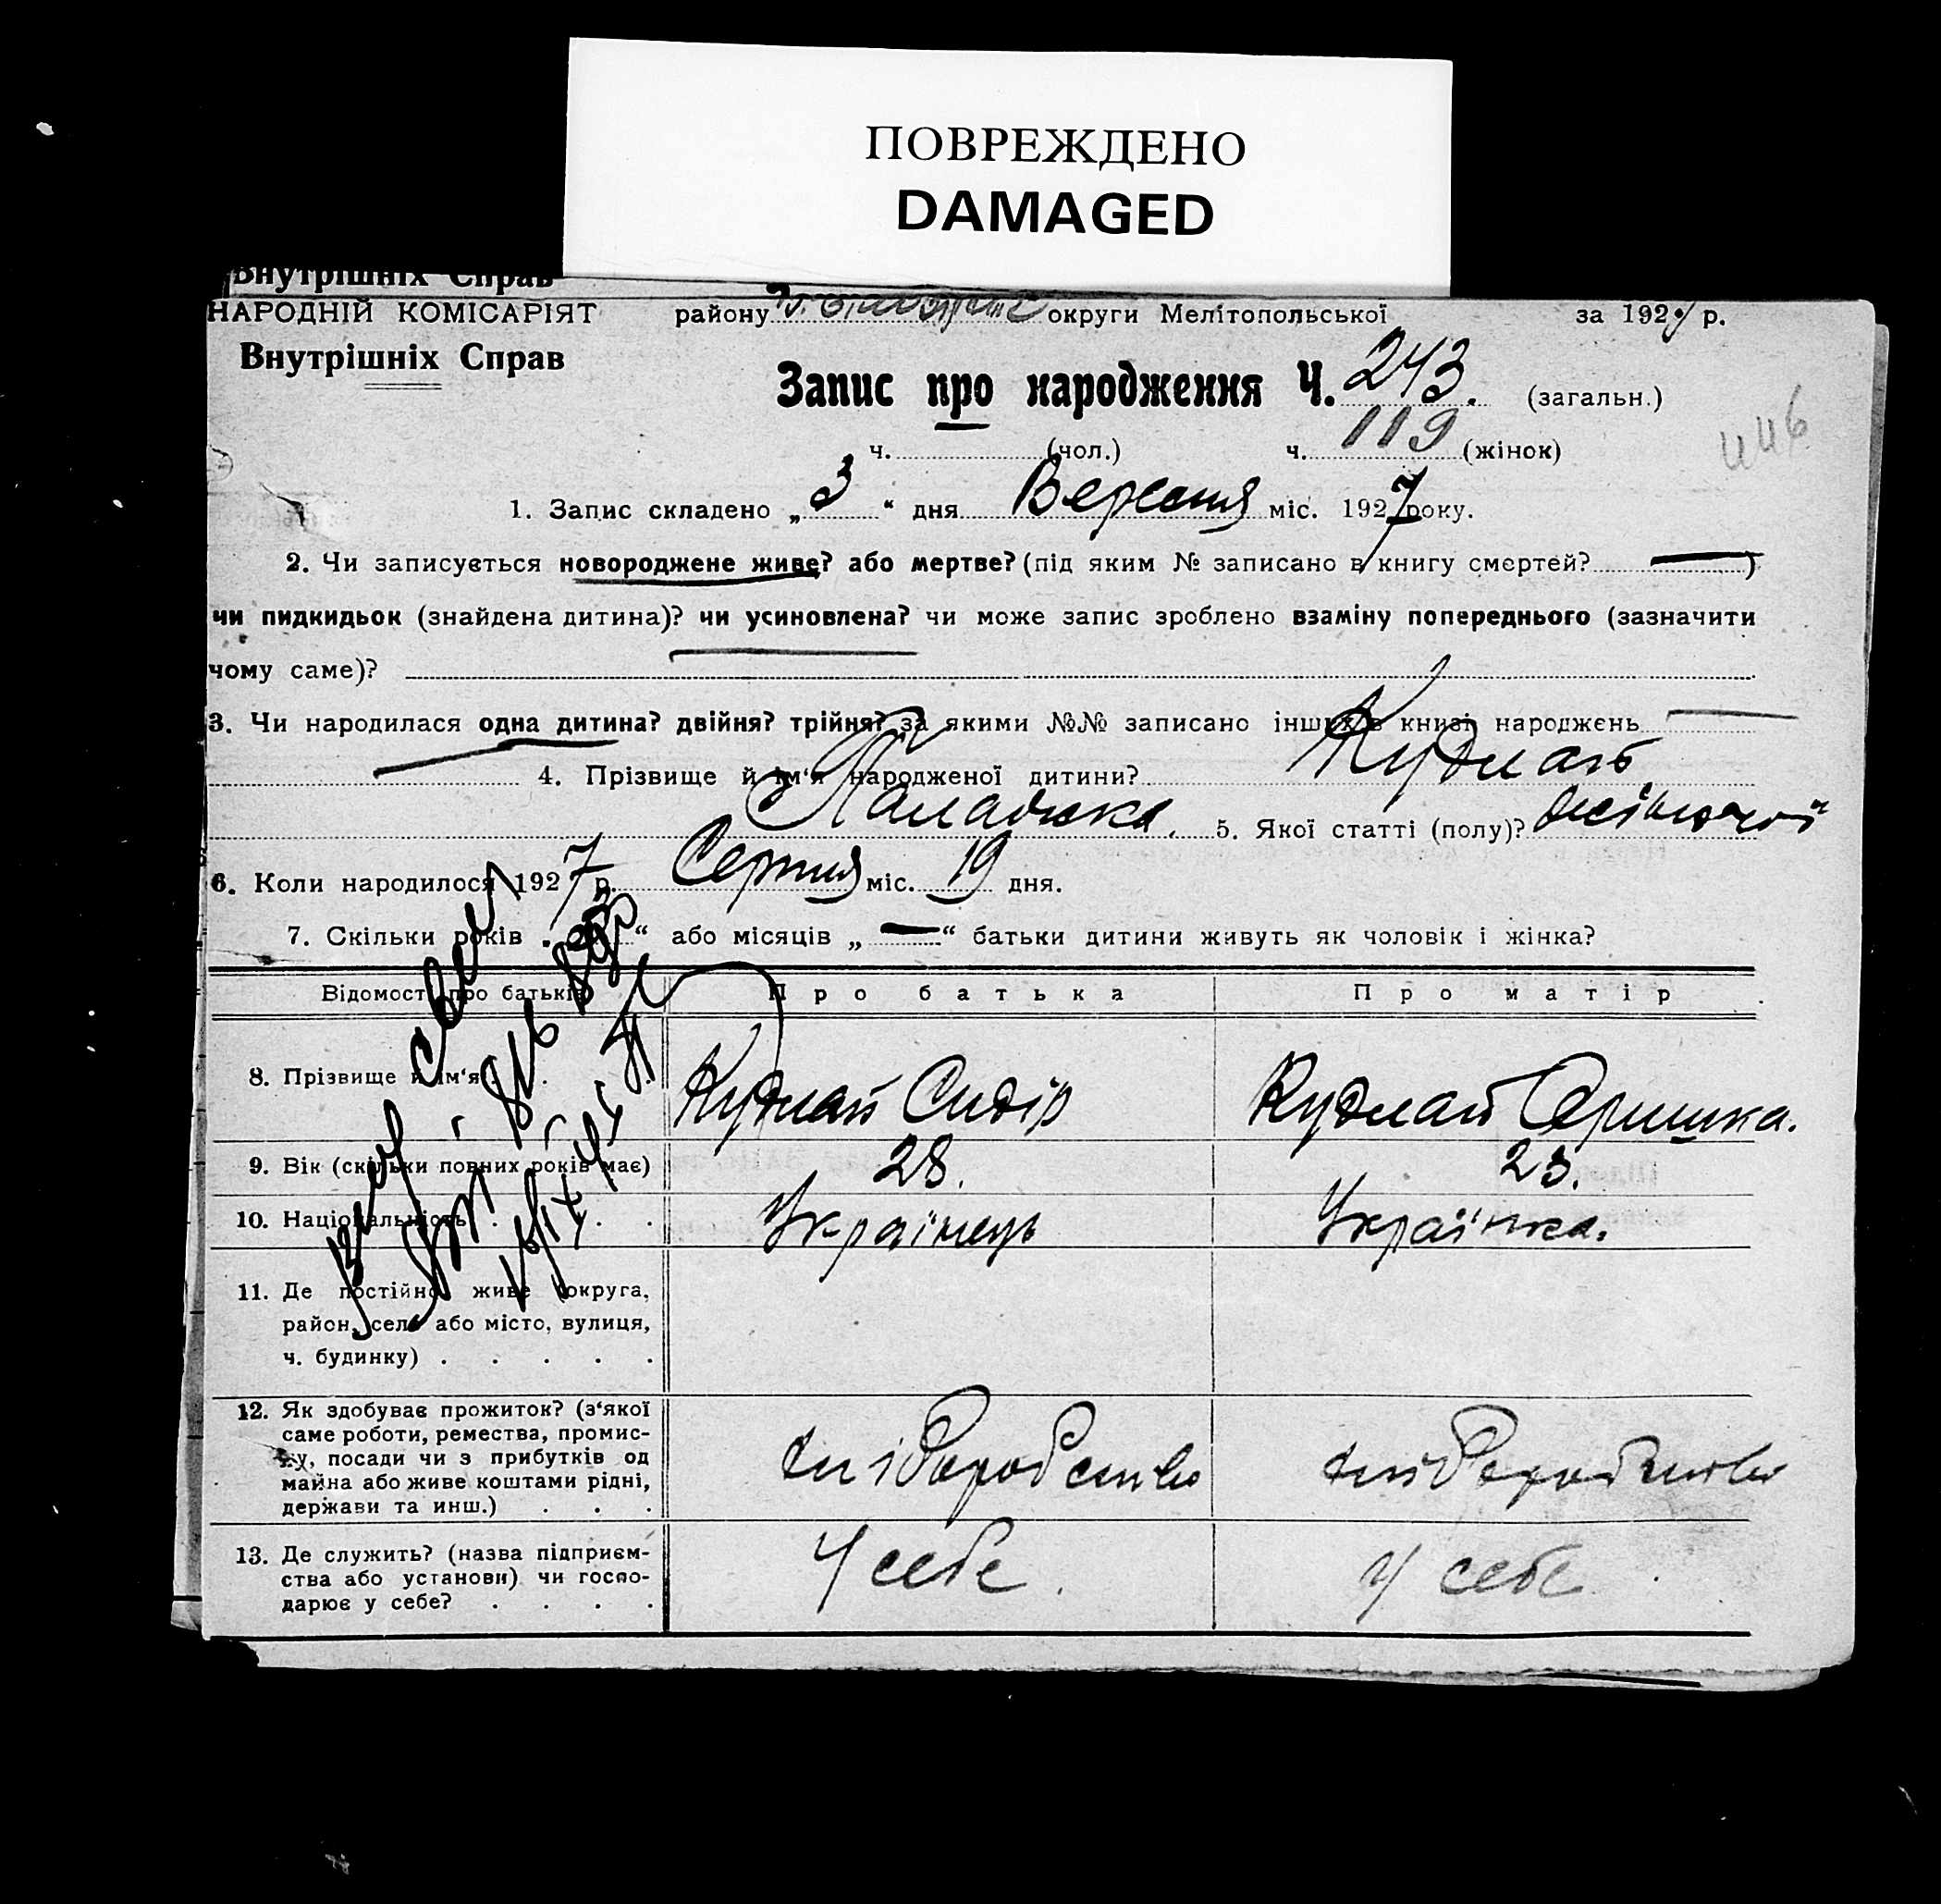 ПОВРЕЖДЕНО
DAMAGED
Внутрішніх Справ
НАРОДНІЙ КОМІСАРІЯТ району округи Мелітопольської за 192 р.
Внутрішніх Справ
Запис про народження Ч. 243. (загальн.)
ч. (чол.) ч. 119 (жінок)
446
1. Запис складено „3“ дня Вересня міс. 1927 року.
2. Чи записується новороджене живе? або мертве? (під яким № записано в книгу смертей? —)
чи пидкидьок (знайдена дитина)? чи усиновлена? чи може запис зроблено взаміну попереднього (зазначити
чому саме)?
3. Чи народилася одна дитина? двійня? трійня? за якими №№ записано інших в книзі народжень
4. Прізвище й ім‘я народженої дитини? Кудлай
Палажка. 5. Якої статті (полу)? жіночої
6. Коли народилося 1927 р. Серпня міс. 19 дня.
7. Скільки років „ “ або місяців „—“ батьки дитини живуть як чоловік і жінка?
Відомості про батьків Про батька Про матір
8. Прізвище й ім‘я . . Кудлай Сидір Кудлай Оришка.
9. Вік (скільки повних років має) 28. 23.
10. Національність . . . . Українець Українка.
11. Де постійно живе (округа,
район, село або місто, вулиця,
ч. будинку) . . . . .
12. Як здобуває прожиток? (з‘якої
саме роботи, ремества, промис-
лу, посади чи з прибутків од
майна або живе коштами рідні,
держави та инш.) . . . хліборобство хліборобство
13. Де служить? (назва підприєм-
ства або установи) чи госпо-
дарює у себе? . . . . У себе. У себе.